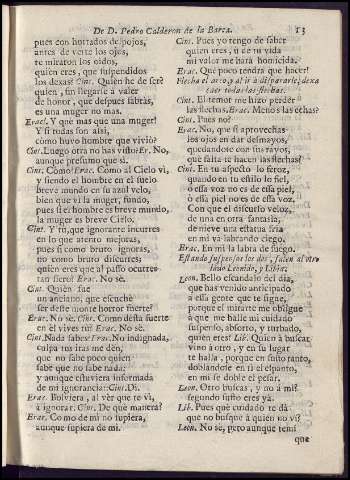 De D. Pedro Calderon de la Barca. 13
pues con hurtados despojos,
antes de verte los ojos,
te miraron los oidos,
quien eres, que suspendidos
los dexas? Cint. Quien he de ser?
quien, sin llegarle à valer
de honor, que despues sabràs,
es una muger no mas.
Eracl. Y que mas que una muger?
Y si todas son assi,
como huvo hombre que viviò?
Cint. Luego otra no has visto? Er. No,
aunque presumo que si.
Cint. Como? Erac. Como al Cielo vi,
y siendo el hombre en el suelo
breve mundo en su azul velo,
bien que vi la muger, fundo,
pues si el hombre es breve mundo,
la muger es breve Cielo.
Cint. Y tù, que ignorante incurres
en lo que atento mejoras,
pues si como bruto ignoras,
no como bruto discurres;
quien eres que al passo ocurres
tan fiero? Erac. No sè.
Cint. Quien fue
un anciano, que escuchè
ser deste monte horror fuerte?
Erac. No sè. Cint. Como desta suerte
en èl vives tu? Erac. No sè.
Cint. Nada sabes? Erac. No indignada,
culpa tus iras me dèn,
que no sabe poco quien
sabe que no sabe nada;
y aunque estuviera informada
de mi ignorancia: Cint. Di.
Erac. Bolviera, al vèr que te vi,
à ignorar. Cint. De què manera?
Erac. Como de mi no supiera,
aunque supiera de mi.
Cint. Pues yo tengo de saber
quien eres, ù de tu vida
mi valor me harà homicida.
Erac. Què poco tendrà que hacer!
Flecha el arco, y al ir à dispararle, dexa
caer todas las flechas.
Cint. El temor me hizo perder
las flechas. Erac. Menos las echas?
Cint. Pues no?
Erac. No, que si aprovechas
los ojos en dar desmayos,
quedandote con sus rayos,
què falta te hacen las flechas?
Cint. En tu aspecto lo feroz,
quando en tu estilo lo fiel,
ò essa voz no es de essa piel,
ò essa piel no es de essa voz.
Con que el discurso veloz,
de una en otra fantasia,
de nieve una estatua fria
en mi và labrando ciego.
Erac. En mi la labra de fuego.
Estando suspensos los dos, salen al otro
lado Leonido, y Libia.
Leon. Bello escandalo del dia,
que has venido anticipado
à essa gente que te sigue,
porque el mirarte me obligue
à que me halle mi cuidado
suspenso, absorto, y turbado,
quien eres? Lib. Quien à buscar
vino à otro, y en su lugar
te halla, porque en susto tanto,
doblandole en ti el espanto,
en mi se doble el pesar.
Leon. Otro buscas, y no à mi?
segundo susto eres yà.
Lib. Pues què cuidado te dà
que no busque à quien no vi?
Leon. No sè, pero aunque temi
que